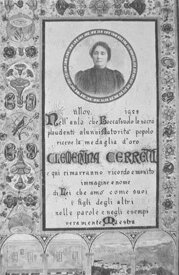 Nov. 1928
Nell'ora che
plaudenti alunni Autorità popolo
riceve la medaglia d'oro
CLEMENTINA CERRATI
qui rimarranno ricordo e monito
immagine e nome
di Lei che amò come suoi
i figli degli altri
nelle parole e negli esempi
veramente Maestra